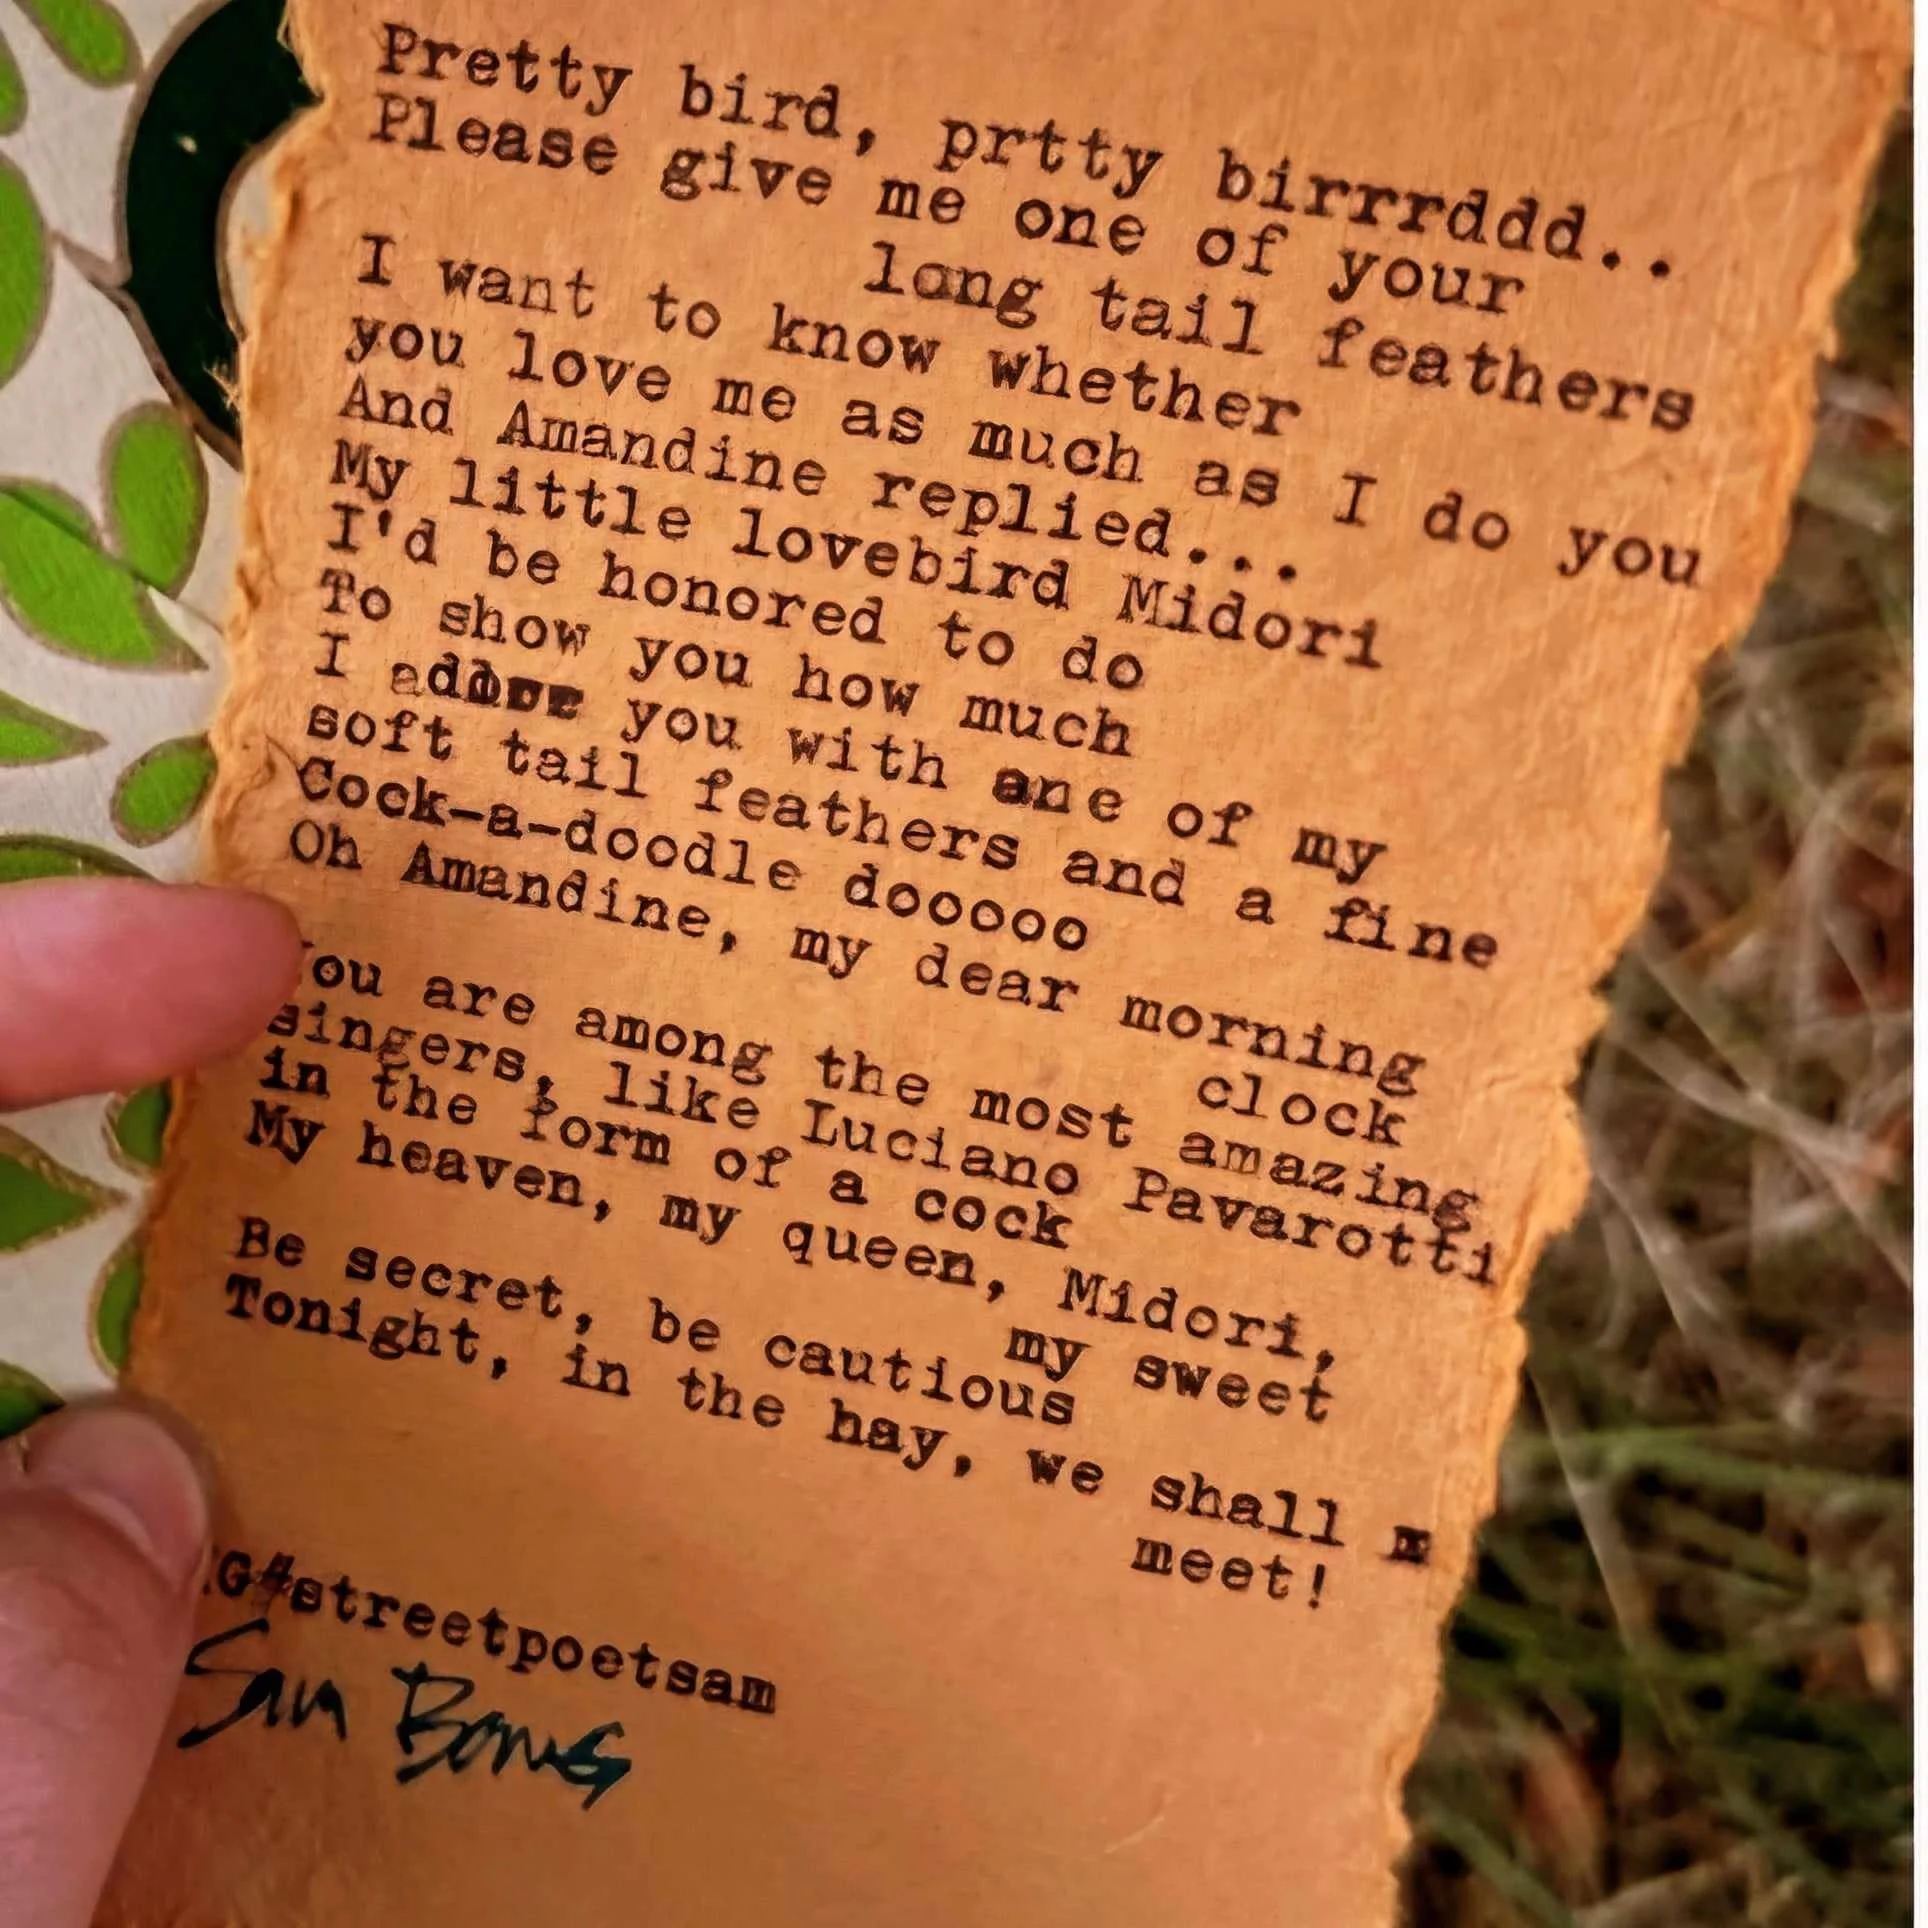 Pretty bird, prtty birrrddd..
Please give me one of your
long tail feathers
I want to know whether
you love me as much as I do you
And Amandine replied...
My little lovebird Midori
I'd be honored to do
To show you how much
I you with one of my
soft tail feathers and a fine
Cock-a-doodle dooooo
Oh Amandine, my dear morning
clock
You are among the most amazing
singers, like Luciano Pavarotti
in the form of a cock
My heaven, my queen, Midori,
my sweet
Be secret, be cautious
Tonight, in the hay, we shall m
meet!
G#streetpoetsam
Sam